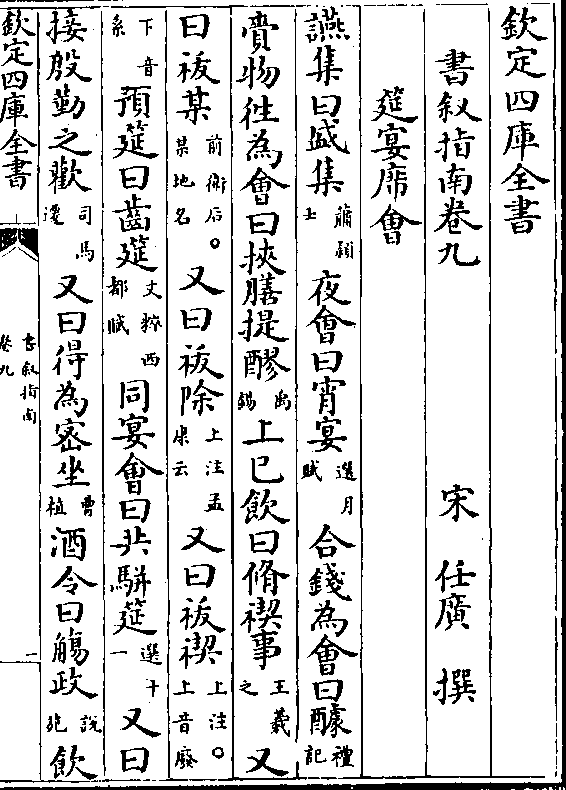 欽定四庫全書
書叙指南卷九
宋 任廣 撰
筵宴席會
讌集曰盛集蕭頴士夜會曰宵宴選月賦合錢為會曰醵禮記
賫物徃為會曰挾膳提醪禹錫上巳飲曰脩禊事王羲之又
曰袚某前衛后。某地名又曰袚除上注孟康云又曰袚禊上注。上音廢
下音系預筵曰齒筵文粹西都賦同宴會曰共駢筵選十一又曰
接殷勤之歡司馬遷又曰得為宻坐曹植酒令曰觴政説苑飲
欽定四庫全書
書叙指南
卷九
一